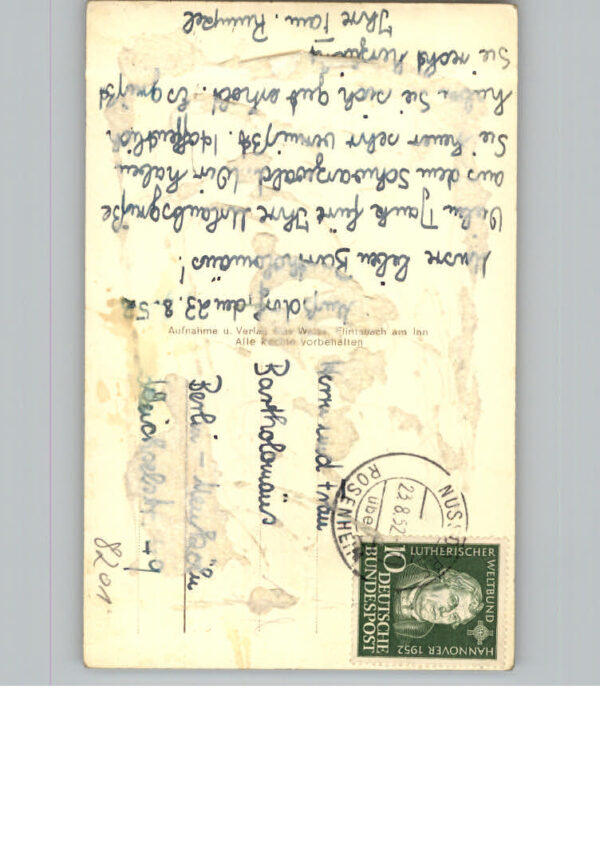 Nußdorf, den 23.8.52
Unsre lieben Bartholomäus!
Vielen Dank für Ihre Urlaubsgrüße
aus dem Schwarzwald. Wir haben
Sie heuer sehr vermißt. Hoffentlich
haben Sie sich gut erholt. Es grüßt
Sie recht herzlich
Ihre Fam. Rumpel
Aufnahme u. Verlag Weiss, Flintsbach am Inn
Alle Rechte vorbehalten
Herrn und Frau
Bartholomäus
Berlin - Neukölln
49
8201
NUSSDORF
23.8.52
über
ROSENHEIM
LUTHERISCHER WELTBUND
HANNOVER 1952
10 DEUTSCHE
BUNDESPOST